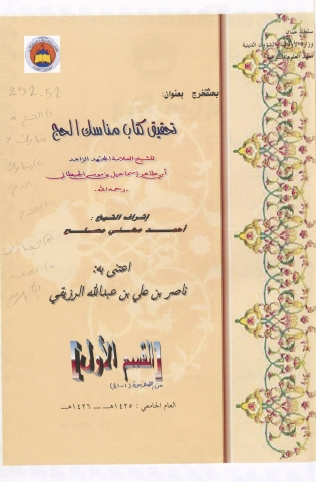 سلطنة عمان
وزارة الأوقاف والشؤون الدينية
معهد العلوم الشرعية
بحث تخرج بعنوان:
252.52
تحقيق كتاب مناسك الحج
للشيخ العلامة
أبي طاهر إسماعيل بن موسى الجيطالي
رحمه الله.
إشراف الشيخ:
أحمد مصلح
اعتنى به:
ناصر بن علي بن عبدالله الرزيقي
القسم الأول
من صفحة (١-٤١)
العام الجامعي: ١٤٢٥هـ ــ ١٤٢٦هـ